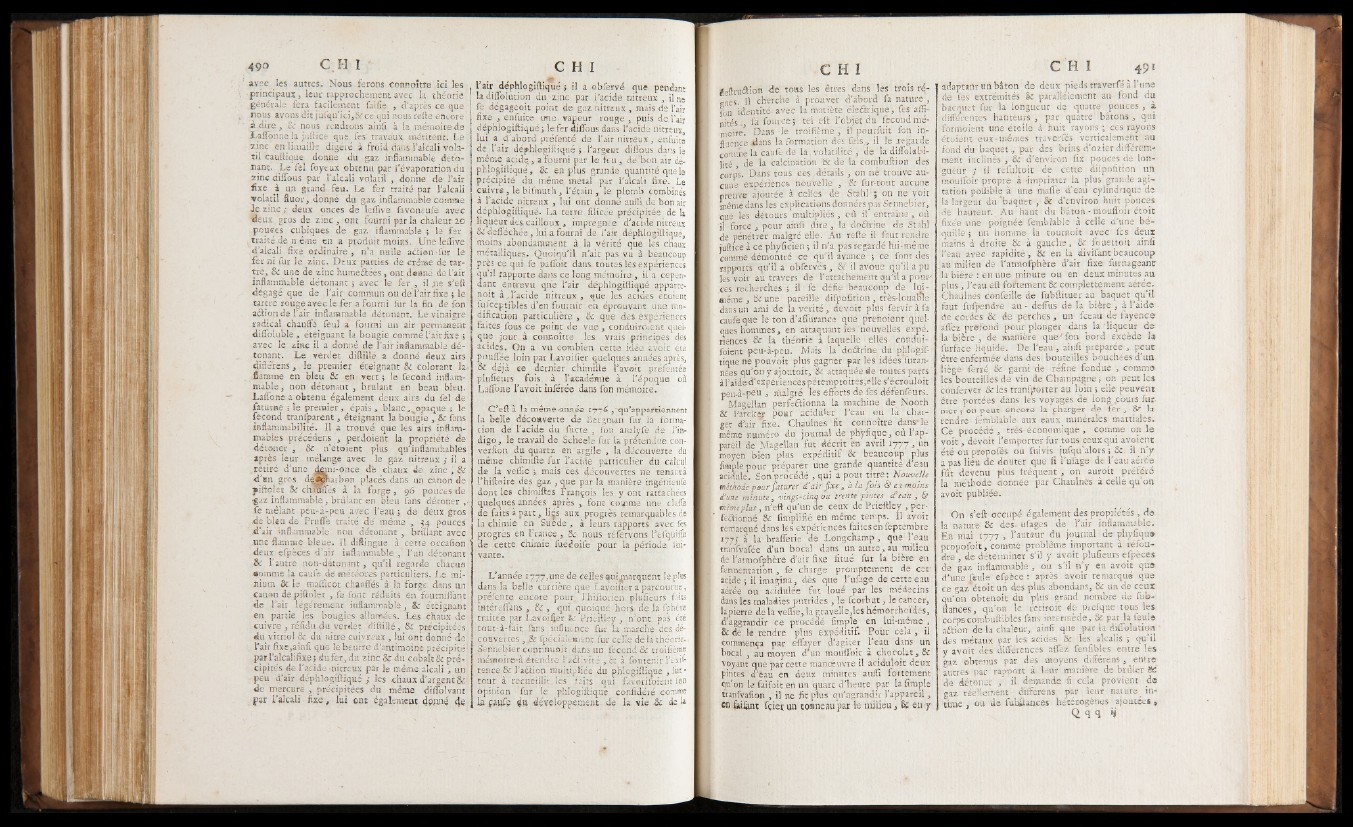 490 C H I
avec les autres. Nous ferons connoître ici les
principaux, leur rapprochement avec la théorie
générale sera facilement saisie, d'après ce que
nous avons dit jusqu'ici, & ce qui nous reste encore
à dire, & nous rendrons ainsi à la mémoire de
Lassonne la justice que ses travaux méritent. Le
zinc en limaille digéré à froid dans l'alcali vola-
til caustique donne du gaz inflammable déto-
nant. Le sel soyeux obtenu par l'évaporation du
zinc dissous par l'alcali volatil, donne de l'air
fixe à un grand feu. Le fer traité par l'alcali
volatil fluor, donne du gaz inflammable comme
le zinc; deux onces de lessive savonneuse avec
deux gros de zinc, ont fourni par la chaleur 20
pouces cubiques de gaz iflammable; le fer
traité de même en a produit moins. Une lessive
d'alcali fixe ordinaire, n'a nulle action sur le
fer ni sur le zinc. Deux parties de crême de tar-
tre, & une de zinc humectées, ont donné de l'air
inflammable détonant; avec le fer, il ne s'est
dégagé que de l'air commun ou de l'air fixe; le
tartre rouge avec le fer a fourni sur la fin de son
action de l'air inflammable détonant. Le vinaigre
radical chauffé seul a fourni un air permanent
dissoluble, éteignant la bougie comme l'air fixe;
avec le zinc il a donné de l'air inflammable dé-
tonant. Le verdet distillé a donné deux airs
différens, le premier éteignant & colorant la
flamme en bleu & en vert; le second inflam-
mable, non détonant, brûlant en beau bleu.
Lassone a obtenu également deux airs du sel de
saturne; le premier, épais, blanc, opaque; le
second transparent, éteignant la bougie, & sans
inflammabilité. Il a trouvé que les airs inflam-
mables précédens, perdoient la propriété de
détoner, & n'étoient plus qu'inflammables
après leur mélange avec le gaz nitreux; il a
retiré d'une demi-once de chaux de zinc, &
d'un gros de charbon placés dans un canon de
pistolet & chauffés à la forge, 96 pouces de
gaz inflammable, brûlant en bleu sans détoner,
se mêlant peu-à-peu avec l'eau; de deux gros
de bleu de Prusse traité de même, 34 pouces
d'air inflammable non détonant, brûlant avec
une flamme bleue. Il distingue à cette occasion
deux espèces d'air inflammable, l'un détonant
& l'autre non-détonant, qu'il regarde chacun
comme la cause de météores particuliers. Le mi-
nium & le massicot chauffés à la forge dans un
canon de pistolet, se sont réduits en fournissant
de l'air légérement inflammable, & éteignant
en partie les bougies allumées. Les chaux de
cuivre, résidu du verdet distillé, & précipitées
du vitriol & du nitre cuivreux, lui ont donné de
l'air fixe, ainsi que le beurre d'antimoine précipité
par l'alcali fixe; du fer, du zinc & du cobalt & pré-
cipités de l'acide nitreux par le même alcali, un
peu d'air déphlogistiqué; les chaux d'argent &
de mercure, précipitées du même dissolvant
par l'alcali fixe, lui ont également donné de
C H I
l'air déphlogistiqué; il a observé que pendant
la dissolution du zinc par l'acide nitreux, il ne
se dégageoit point de gaz nitreux, mais de l'air
fixe, ensuite une vapeur rouge, puis de l'air
déphlogistiqué; le fer dissous dans l'acide nitreux,
lui a d'abord présenté de l'air nitreux, ensuite
de l'air déphlogistiqué; l'argent dissous dans le
même acide, a fourni par le feu, de bon air dé-
phlogistiqué, & en plus grande quantité que le
précipité du même métal par l'alcali fixe. Le
cuivre, le bismuth, l'étain, le plomb combinés
à l'acide nitreux, lui ont donné aussi de bon air
déphlogistiqué. La terre silicée précipitée de la
liqueur des cailloux, imprégnée d'acide nitreux
& desséchée, lui a fourni de l'air déphlogistiqué,
moins abondamment à la vérité que les chaux
métalliques. Quoiqu'il n'ait pas vu à beaucoup
près ce qui se passoit dans toutes les expériences
qu'il rapporte dans ce long mémoire, il a cepen-
dant entrevu que l'air déphlogistiqué apparte-
noit à l'acide nitreux, que les acides étoient
susceptibles d'en fournir en éprouvant une mo-
dification particulière, & que des expériences
faites sous ce point de vue, conduiroient quel-
que jour à connoître les vrais principes des
acides. On a vu combien cette idée avoit été
poussée loin par Lavoisier quelques années après,
& déjà ce dernier chimiste l'avoit présentée
plusieurs fois à l'académie à l'époque où
Lassone l'avoit insérée dans son mémoire.
C'est à la même année 1776, qu'appartiennent
la belle découverte de Bergman sur la forma-
tion de l'acide du sucre, son analyse de l'in-
digo, le travail de Scheele sur la prétendue con-
version du quartz en argile, la découverte du
même chimiste sur l'acide particulier du calcul
de la vessie; mais ces découvertes ne tenant à
l'histoire des gaz, que par la manière ingénieuse
dont les chimistes François les y ont rattachées
quelques années après, font comme une classe
de faits à part, liés aux progrès remarquables de
la chimie en Suède, à leurs rapports avec ses
progrès en France, & nous réservons l'esquisse
de cette chimie suédoise pour la période sui-
vante.
L'année 1777, une de celles qui marquent le plus
dans la belle carrière que Lavoisier a parcourue,
présente encore pour l'historien plusieurs faits
intéressans, &, qui quoique hors de la sphère
traitée par Lavoisier & Priestley, n'ont pas été
tout-à-fait sans influence sur la marche des dé-
couvertes, & spécialement sur celle de la théorie.
Sennebier continuoit dans un second & troisième
mémoire à étendre l'activité, & à soutenir l'exis-
tence & l'action multipliée du phlogistique, sur-
tout à recueillir les faits qui favorisoient son
opinion sur le phlogistique considéré comme
la cause du développement de la vie & de la
C H I
destruction de tous les êtres dans les trois rè-
gnes. Il cherche à prouver d'abord sa nature,
son identité avec la matière électrique, ses affi-
nités, sa source; tel est l'objet du second mé-
moire. Dans le troisième, il poursuit son in-
fluence dans la formation des sels, il le regarde
comme la cause de la volatilité, de la dissolubi-
lité, de la calcination & de la combustion des
corps. Dans tous ces détails, on ne trouve au-
cune expérience nouvelle, & sur-tout aucune
preuve ajoutée à celles de Stahl; on ne voit
même dans les explications données par Sennebier,
que les détours multipliés, où il entraîne, où
il force, pour ainsi dire, la doctrine de Stahl
de pénétrer malgré elle. Au reste il faut rendre
justice à ce physicien; il n'a pas regardé lui-même
comme démontré ce qu'il avance; ce sont des
rapports qu'il a observés, & il avoue qu'il a pu
les voir au travers de l'attachement qu'il a pour
ces recherches; il se défie beaucoup de lui-
même, & une pareille disposition, très-louable
dans un ami de la vérité, devoit plus servir à sa
cause que le ton d'assurance que prenoient quel-
ques hommes, en attaquant les nouvelles expé-
riences & la théorie à laquelle elles condui-
soient peu-à-peu. Mais la doctrine du phlogis-
tique ne pouvoit plus gagner par les idées suran-
nées qu'on y ajoutoit, & attaquée de toutes parts
à l'aide d'expériences péremptoires, elle s'écrouloit
peu-à-peu, malgré les efforts de ses défenseurs.
Magellan perfectionna la machine de Nooth
& Parcker pour aciduler l'eau ou la char-
ger d'air fixe. Chaulnes fit connoître dans le
même numéro du journal de physique, où l'ap-
pareil de Magellan fut décrit en avril 1777, un
moyen bien plus expéditif & beaucoup plus
simple pour préparer une grande quantité d'eau
acidule. Son procédé, qui a pour titre: Nouvelle
méthode pour saturer d'air fixe, à la fois & en moins
d'une minute, vingt-cinq ou trente pintes d'eau, &
même plus, n'est qu'un de ceux de Priestley, per-
fectionné & simplifié en même temps. Il avoit
remarqué dans les expériences faites en septembre
1775 à la brasserie de Longchamp, que l'eau
transvasée d'un bocal dans un autre, au milieu
de l'atmosphère d'air fixe situé sur la bière en
fermentation, se charge promptement de cet
acide; il imagina, dès que l'usage de cette eau
aérée ou acidulée fut loué par les médecins
dans les maladies putrides, le scorbut, le cancer,
la pierre de la vessie, la gravelle, les hémorrhoïdes,
d'aggrandir ce procédé simple en lui-même,
& de le rendre plus expéditif. Pour cela, il
commença par essayer d'agiter l'eau dans un
bocal, au moyen d'un moussoir à chocolat, &
voyant que par cette manœuvre il aciduloit deux
pintes d'eau en deux minutes aussi fortement
qu'on le faisoit en un quart d'heure par la simple
transvasion, il ne fit plus qu'agrandir l'appareil,
en faisant scier un tonneau par le milieu, & en y
C H I 491
adaptant un bâton de deux pieds traversé à l'une
de ses extrémités & parallélement au fond du
bacquet sur la longueur de quatre pouces, à
différentes hauteurs, par quatre bâtons, qui
formoient une étoile à huit rayons; ces rayons
étoient eux-mêmes traversés verticalement au
fond du baquet, par des brins d'ozier différem-
ment inclinés, & d'environ six pouces de lon-
gueur; il résultoit de cette disposition un
moussoir propre à imprimer la plus grande agi-
tation possible à une masse d'eau cylindrique de
la largeur du baquet, & d'environ huit pouces
de hauteur. Au haut du bâton-moussoir étoit
fixée une poignée semblable à celle d'une bé-
quille; un homme la tournoit avec ses deux
mains à droite & à gauche, & fouettoit ainsi
l'eau avec rapidité, & en la divisant beaucoup
au milieu de l'atmosphère d'air fixe surnageant
la bière: en une minute ou en deux minutes au
plus, l'eau est fortement & complettement aérée.
Chaulnes conseille de substituer au baquet qu'il
faut suspendre au-dessus de la bière, à l'aide
de cordes & de perches, un sceau de fayence
assez profond pour plonger dans la liqueur de
la bière, de manière que son bord excède la
surface liquide. De l'eau, ainsi préparée, peut
être enfermée dans des bouteilles bouchées d'un
liège serré & garni de résine fondue, comme
les bouteilles de vin de Champagne; on peut les
conserver & les transporter au loin; elle peuvent
être portées dans les voyages de long cours sur
mer; on peut encore la charger de fer, & la
rendre semblable aux eaux minérales martiales.
Ce procédé, très-économique, comme on le
voit, devoit l'emporter sur tous ceux qui avoient
été ou proposés ou suivis jusqu'alors; & il n'y
a pas lieu de douter que si l'usage de l'eau aérée
fût devenu plus fréquent, on auroit préféré
la méthode donnée par Chaulnes à celle qu'on
avoit publiée.
On s'est occupé également des propriétés, de
la nature & des usages de l'air inflammable.
En mai 1777, l'auteur du journal de physique
proposoit, comme problême important à résou-
dre, de déterminer s'il y avoit plusieurs espèces
de gaz inflammable, ou s'il n'y en avoit que
d'une seule espèce: après avoir remarqué que
ce gaz étoit un des plus abondans, & un de ceux
qu'on obtenoit du plus grand nombre de subs-
tances, qu'on le retiroit de presque tous les
corps combustibles sans intermède, & par la seule
action de la chaleur, ainsi que par la dissolution
des métaux par les acides & les alcalis; qu'il
y avoit des différences assez sensibles entre les
gaz obtenus par des moyens différens, entre
autres par rapport à leur manière de brûler &
de détoner, il demande si cela provient de
gaz réellement différens par leur nature in-
time, ou de substances hétérogènes ajoutées,
Q q q ij